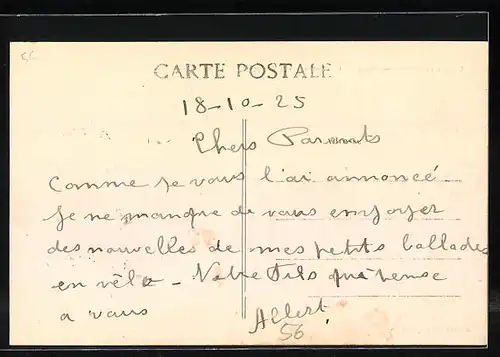 56
CARTE POSTALE
18-10-25
Chers Parents
Comme je vous l'ai annoncé
je ne manque de vous envoyer
des nouvelles de mes petits ballades
en vélo - Votre Fils qui pense
a vous
Albert
56